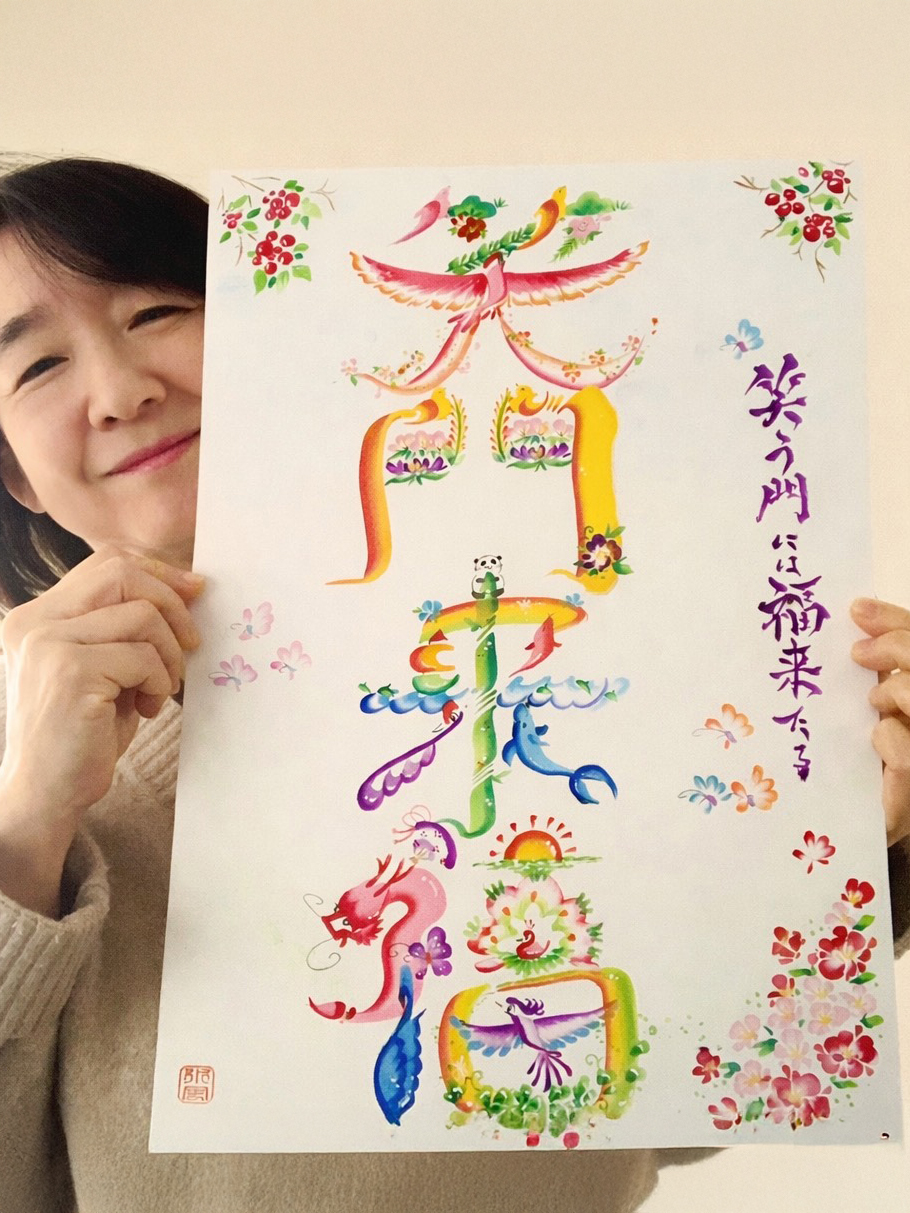 笑う門には福来たる
笑門来福